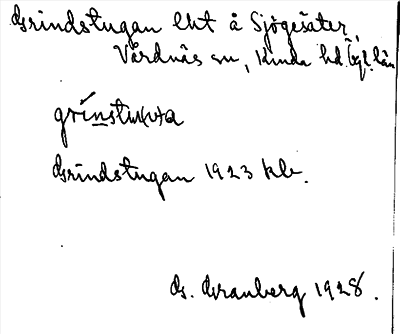 Grindstugan lht å Sjögesäter,
Vårdnäs sn, Kinda hd. Ögl. län
grínstu(w)a
Grindstugan 1923 kb.
G. Granberg 1928.